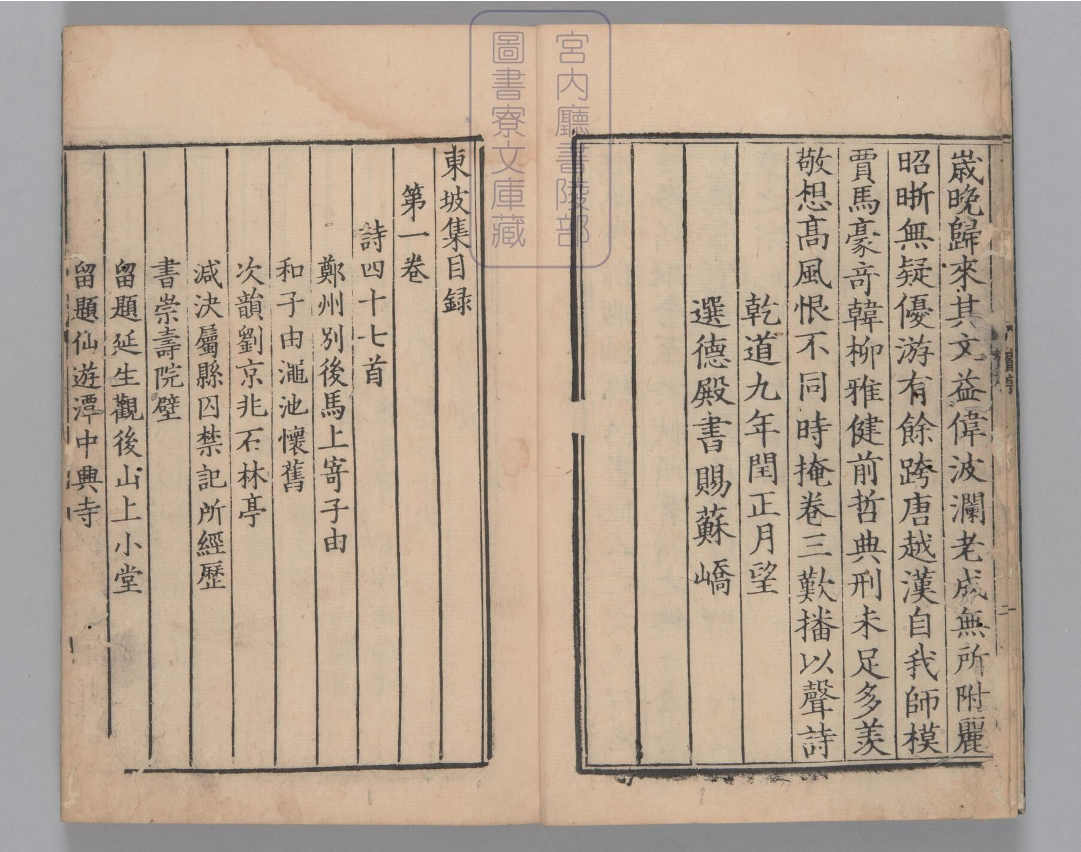 歳晚歸來其文益偉波瀾老成無所附麗
昭晣無疑優游有餘跨唐越漢自我師模
賈馬豪竒韓柳雅健前哲典刑未足多羡
敬想髙風恨不同時掩卷三歎播以聲詩
乾道九年閏正月望
選德殿書賜蘇嶠
東坡集目録
第一卷
詩四十七首
鄭州别後馬上寄子由
和子由澠池懷舊
次韻劉京兆石林亭
減決屬縣囚禁記所經歷
書崇壽院壁
留題延生觀後山上小堂
留題仙遊潭中興寺
宮內廳書陵部
圖書寮文庫藏
二